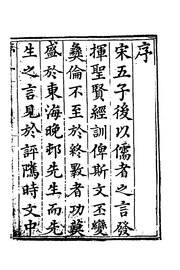 序
宋五子後以儒者之言發
揮聖賢經訓俾斯文丕變
彝倫不至於終斁者功莫
盛於東海晚邨先生而先
生之言見於評隲時文中